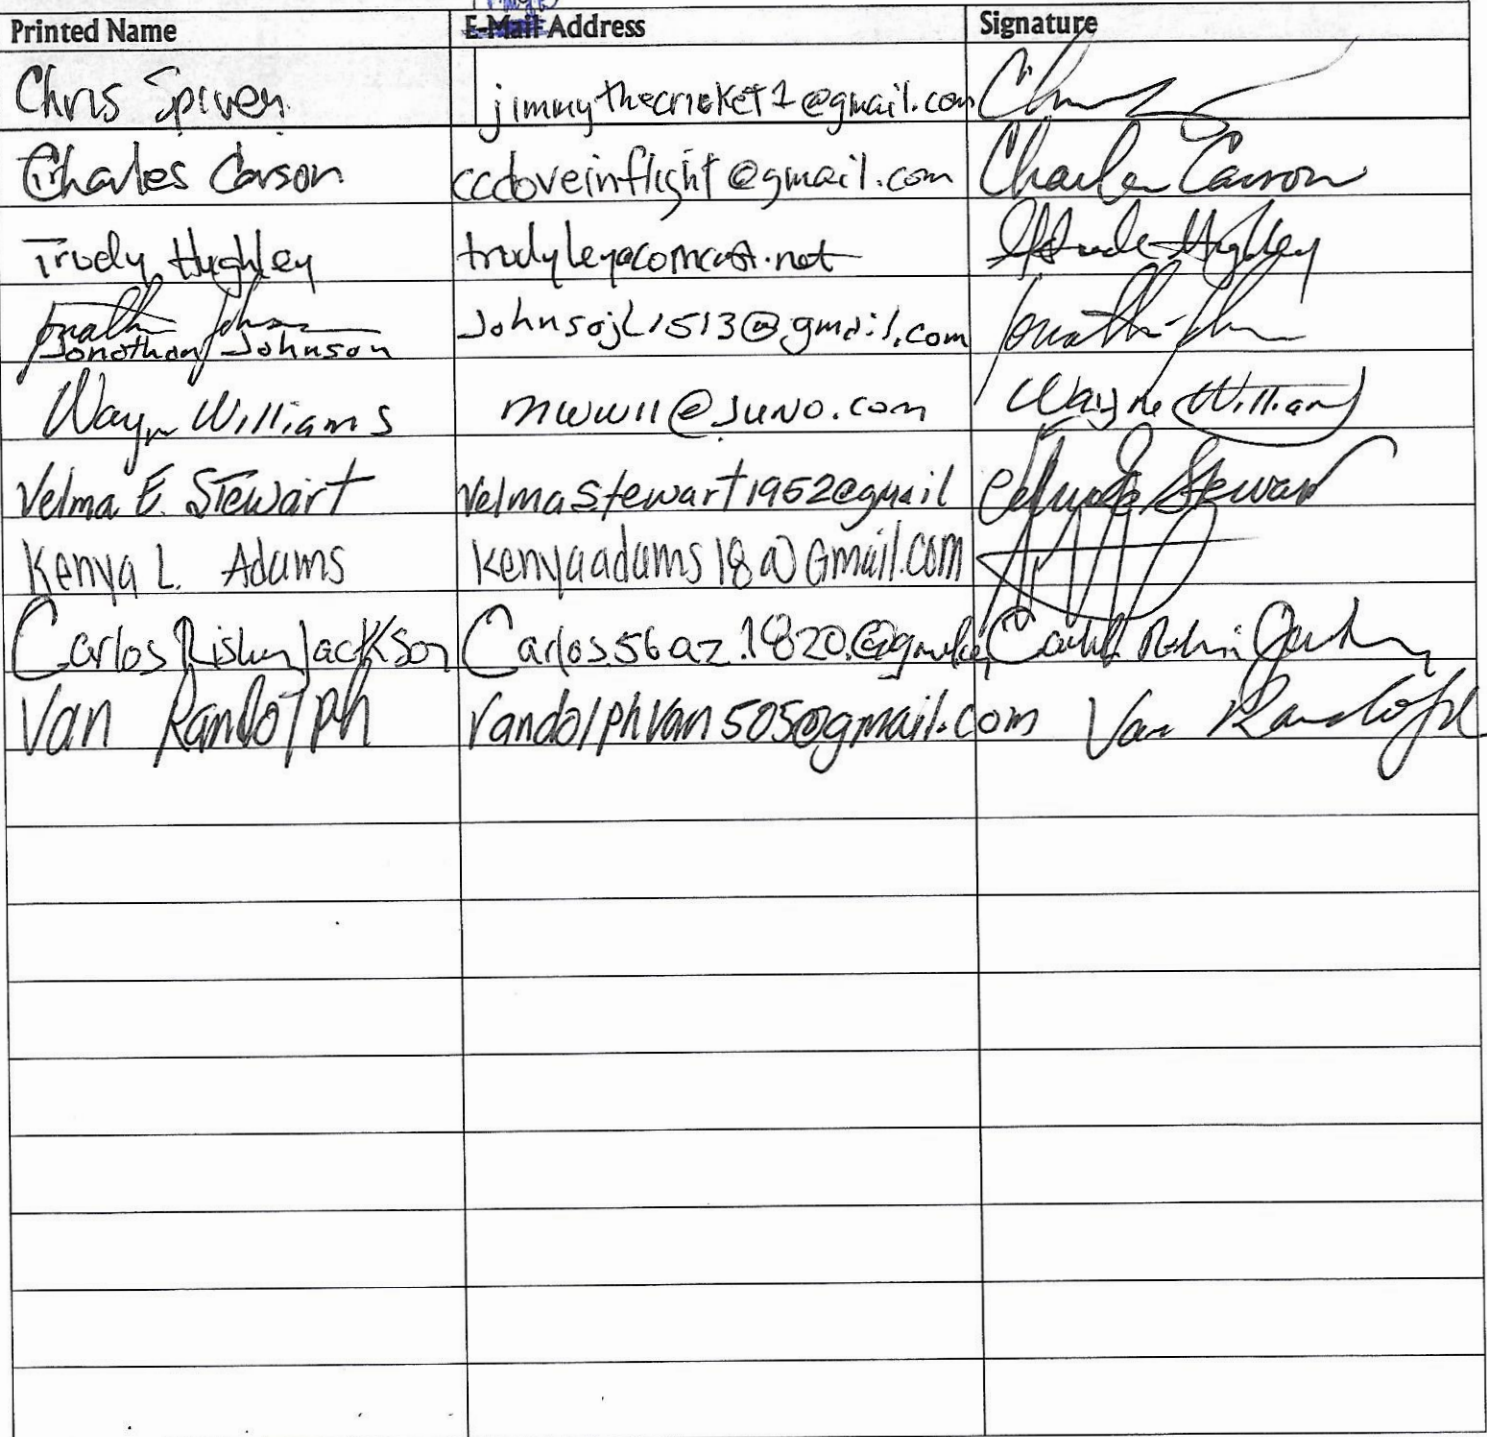 Printed Name E-Mail Address Signature
Chris Spivey jimmythecricket1@gmail.com
Charles Carson ccdoveinflight@gmail.com Charles Carson
Trudy Hughley trudyley@comcast.net Hughley
Jonathan Johnson
Jonathan Johnson Johnsojl1513@gmail.com
Wayne Williams mwwll@juno.com Wayne Williams
Velma E. Stewart Velmastewart1952@gmail Stewart
Kenya L. Adams Kenyaadams18@Gmail.com
Carlos Jackson Carlos56az.1820.@
Van Randolph randolphvan505@gmail.com Van Randolph